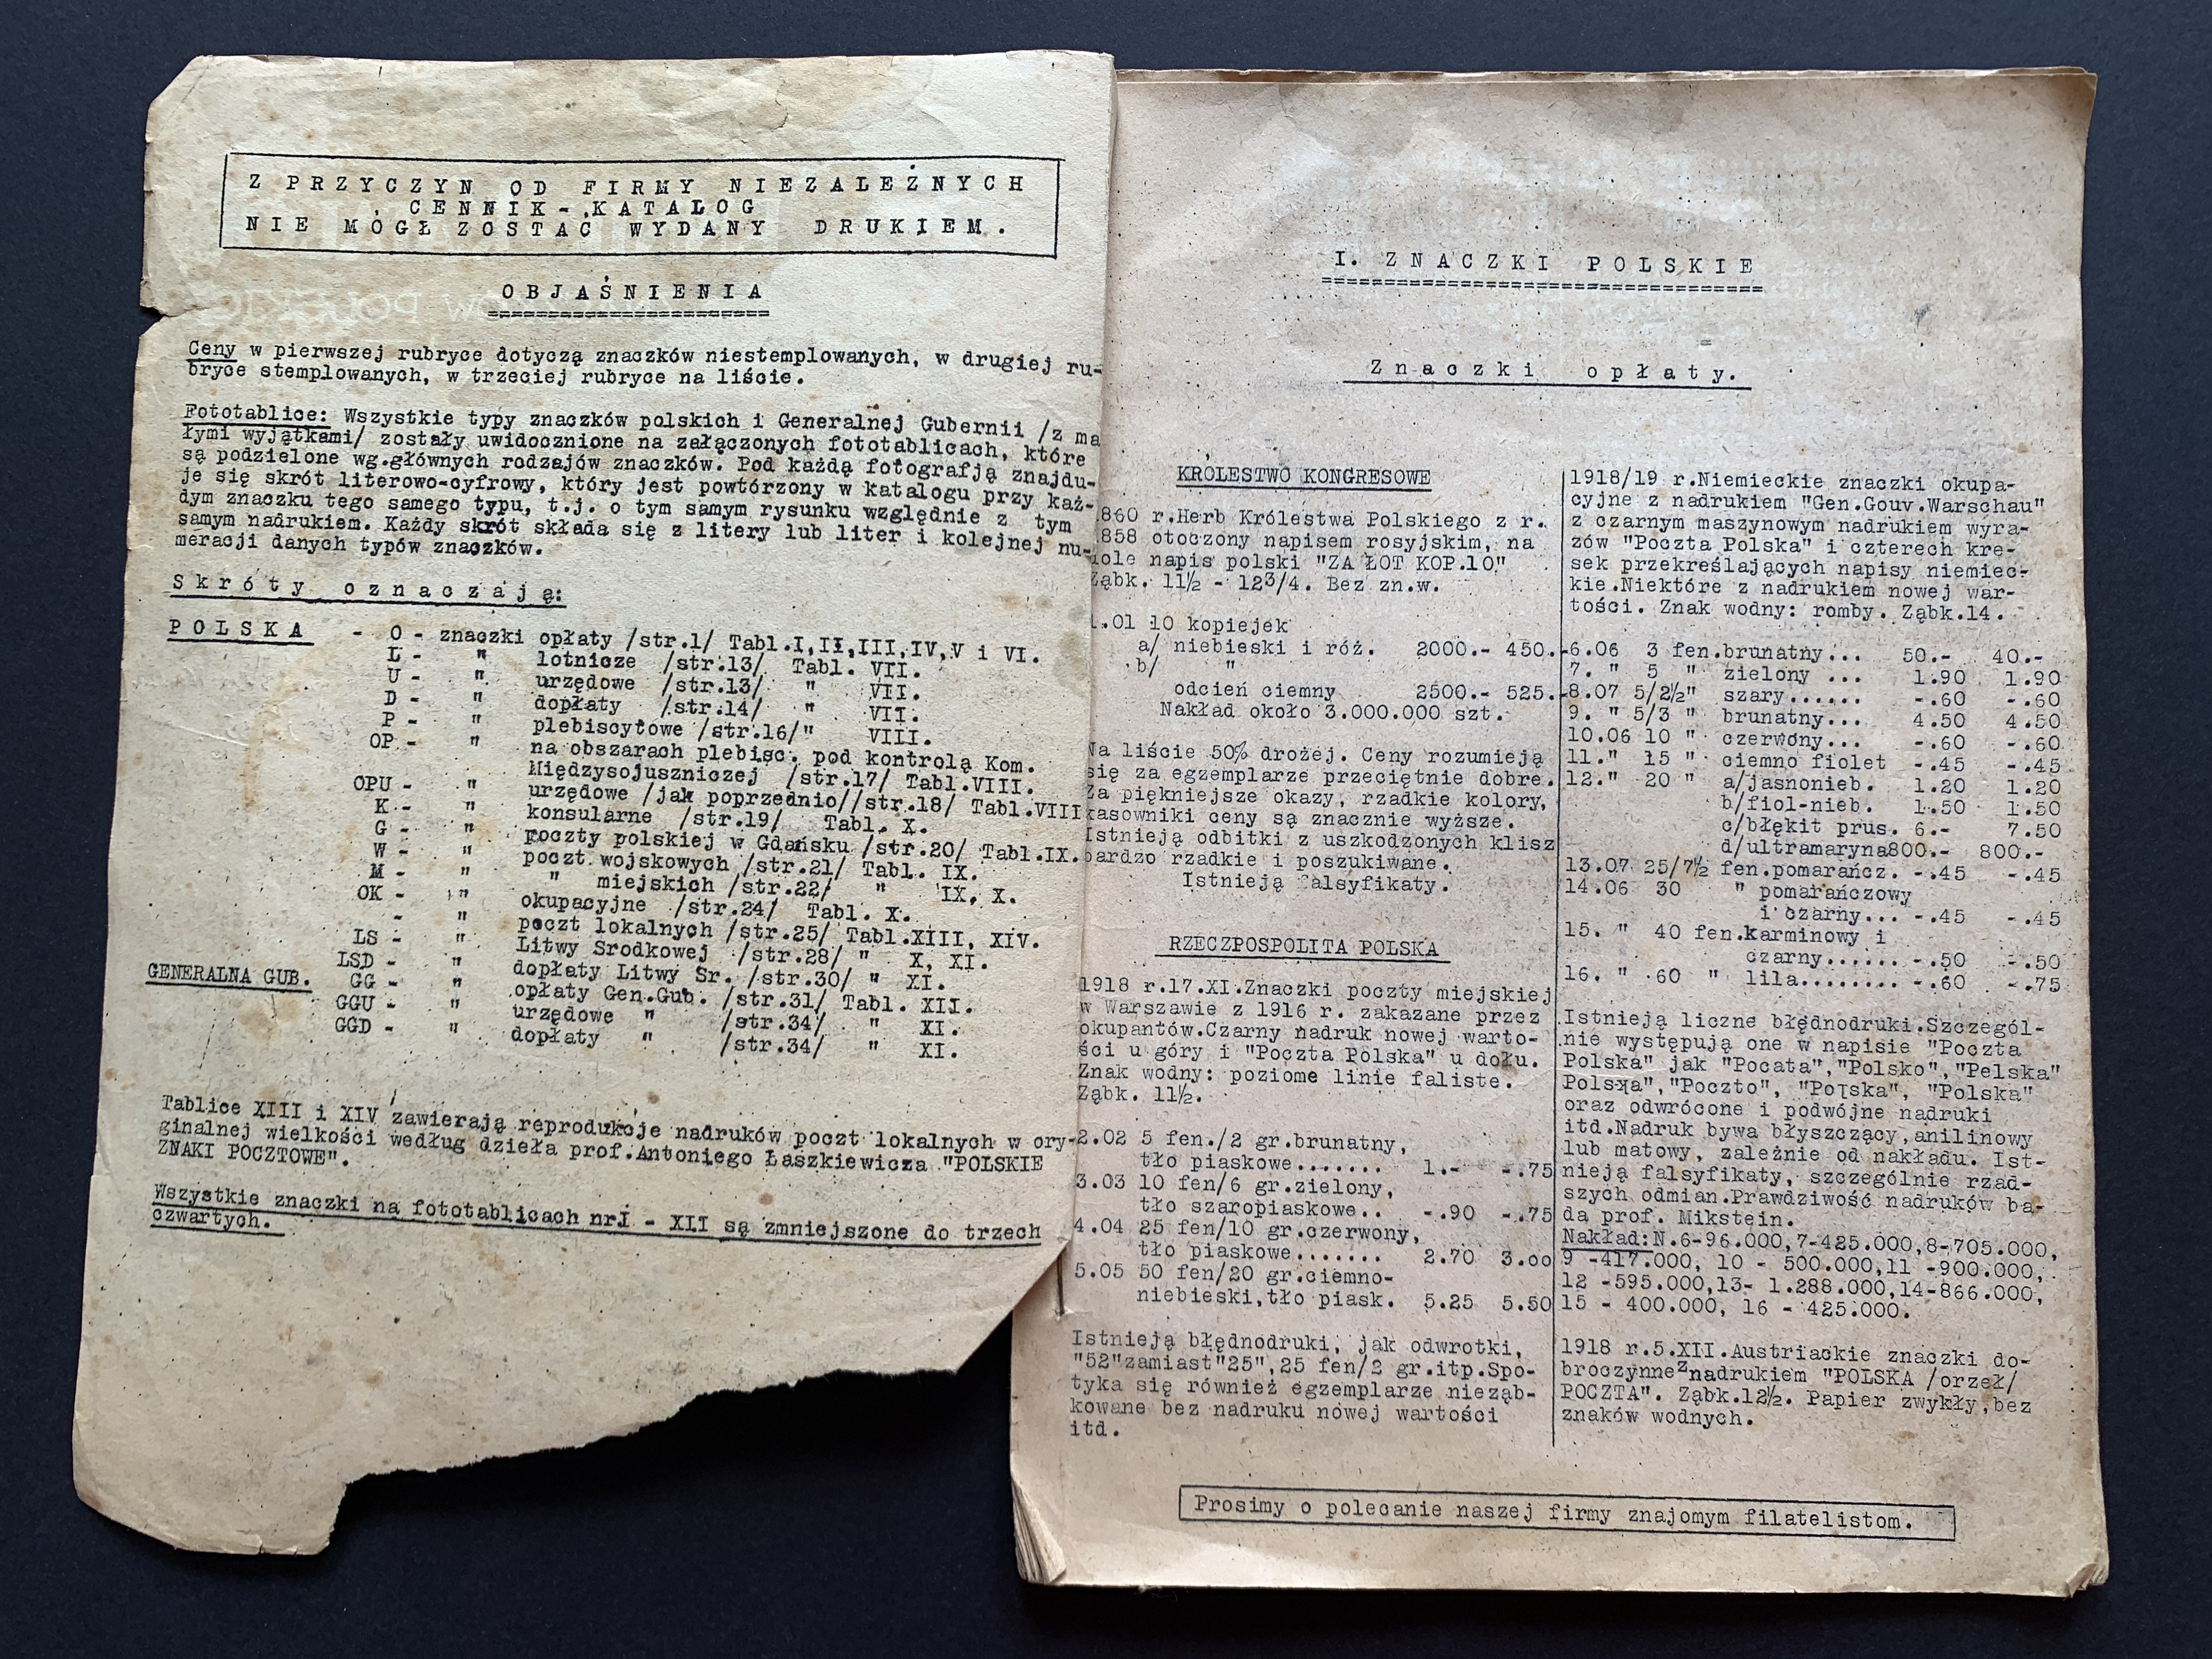 Z PRZYCZYN OD FIRMY NIEZALEŻNYCH
CENNIK-KATALOG
NIE MÓGŁ ZOSTAĆ WYDANY DRUKIEM.
OBJAŚNIENIA
Ceny w pierwszej rubryce dotyczą znaczków niestemplowanych, w drugiej ru-
bryce stemplowanych, w trzeciej rubryce na liście.
Fototablice: Wszystkie typy znaczków polskich i Generalnej Gubernii /z ma
łymi wyjątkami/ zostały uwidocznione na załączonych fototablicach, które
są podzielone wg.głównych rodzajów znaczków. Pod każdą fotografją znajdu-
je się skrót literowo-cyfrowy, który jest powtórzony w katalogu przy każ-
dym znaczku tego samego typu, t.j. o tym samym rysunku względnie z tym
samym nadrukiem. Każdy skrót składa się z litery lub liter i kolejnej nu-
meracji danych typów znaczków.
Skróty oznaczają:
POLSKA - O - znaczki opłaty /str.1/ Tabl.I,II,III,IV,V i VI.
L - " lotnicze /str.13/ Tabl. VII.
U - " urzędowe /str.13/ " VII.
D - " dopłaty /str.14/ " VII.
P - " plebiscytowe /str.16/" VIII.
OP - " na obszarach plebisc. pod kontrolą Kom.
Międzysojuszniczej /str.17/ Tabl.VIII.
OPU - " urzędowe /jak poprzednio//str.18/ Tabl.VIII
K - " konsularne /str.19/ Tabl. X.
G - " poczty polskiej w Gdańsku /str.20/ Tabl.IX.
W - " poczt wojskowych /str.21/ Tabl. IX.
M - " " miejskich /str.22/ " IX, X.
OK - " okupacyjne /str.24/ Tabl. X.
- " poczt lokalnych /str.25/ Tabl.XIII, XIV.
LS - " Litwy Srodkowej /str.28/ " X, XI.
LSD - " dopłaty Litwy Sr. /str.30/ " XI.
GENERALNA GUB. GG - " opłaty Gen.Gub. /str.31/ Tabl. XII.
GGU - " urzędowe " /str.34/ " XI.
GGD - " dopłaty " /str.34/ " XI.
Tablice XIII i XIV zawierają reprodukcje nadruków poczt lokalnych w ory-
ginalnej wielkości według dzieła prof.Antoniego Łaszkiewicza "POLSKIE
ZNAKI POCZTOWE".
Wszystkie znaczki na fototablicach nrI - XII są zmniejszone do trzech
czwartych.
I. ZNACZKI POLSKIE
Znaczki opłaty.
KRÓLESTWO KONGRESOWE
860 r.Herb Królestwa Polskiego z r.
858 otoczony napisem rosyjskim, na
dole napis polski "ZA ŁOT KOP.10"
Ząbk. 11½ - 12¾. Bez zn.w.
1.01 10 kopiejek
a/ niebieski i róż. 2000.- 450.-
b/ "
odcień ciemny 2500.- 525.-
Nakład około 3.000.000 szt.
Na liście 50% drożej. Ceny rozumieją
się za egzemplarze przeciętnie dobre.
Za piękniejsze okazy, rzadkie kolory,
kasowniki ceny są znacznie wyższe.
Istnieją odbitki z uszkodzonych klisz
bardzo rzadkie i poszukiwane.
Istnieją falsyfikaty.
RZECZPOSPOLITA POLSKA
1918 r.17.XI.Znaczki poczty miejskiej
w Warszawie z 1916 r. zakazane przez
okupantów.Czarny nadruk nowej warto-
ści u góry i "Poczta Polska" u dołu.
Znak wodny: poziome linie faliste.
Ząbk. 11½.
2.02 5 fen./2 gr.brunatny,
tło piaskowe....... 1.- -.75
3.03 10 fen/6 gr.zielony,
tło szaropiaskowe.. -.90 -.75
4.04 25 fen/10 gr.czerwony,
tło piaskowe....... 2.70 3.oo
5.05 50 fen/20 gr.ciemno-
niebieski,tło piask. 5.25 5.50
Istnieją błędnodruki, jak odwrotki,
"52"zamiast"25",25 fen/2 gr.itp.Spo-
tyka się również egzemplarze nieząb-
kowane bez nadruku nowej wartości
itd.
1918/19 r.Niemieckie znaczki okupa-
cyjne z nadrukiem "Gen.Gouv.Warschau"
z czarnym maszynowym nadrukiem wyra-
zów "Poczta Polska" i czterech kre-
sek przekreślających napisy niemiec-
kie.Niektóre z nadrukiem nowej war-
tości. Znak wodny: romby. Ząbk.14.
6.06 3 fen.brunatny... 50.- 40.-
7. " 5 " zielony ... 1.90 1.90
8.07 5/2½" szary...... -.60 -.60
9. " 5/3 " brunatny... 4.50 4.50
10.06 10 " czerwony... -.60 -.60
11." 15 " ciemno fiolet -.45 -.45
12." 20 " a/jasnonieb. 1.20 1.20
b/fiol-nieb. 1.50 1.50
c/błękit prus. 6.- 7.50
d/ultramaryna800.- 800.-
13.07 25/7½ fen.pomarańcz. -.45 -.45
14.06 30 " pomarańczowy
i czarny... -.45 -.45
15. " 40 fen.karminowy i
czarny...... -.50 -.50
16. " 60 " lila........ -.60 -.75
Istnieją liczne błędnodruki.Szczegól-
nie występują one w napisie "Poczta
Polska" jak "Pocata","Polsko","Pelska"
Polsʞa","Poczto", "Poꞁska", "Polska"
oraz odwrócone i podwójne nadruki
itd.Nadruk bywa błyszczący,anilinowy
lub matowy, zależnie od nakładu. Ist-
nieją falsyfikaty, szczególnie rzad-
szych odmian.Prawdziwość nadruków ba-
da prof. Mikstein.
Nakład:N.6-96.000,7-425.000,8-705.000,
9 -417.000, 10 - 500.000,11 -900.000,
12 -595.000,13- 1.288.000,14-866.000,
15 - 400.000, 16 - 425.000.
1918 r.5.XII.Austriackie znaczki do-
broczynne z nadrukiem "POLSKA /orzeł/
POCZTA". Ząbk.12½. Papier zwykły,bez
znaków wodnych.
Prosimy o polecanie naszej firmy znajomym filatelistom.